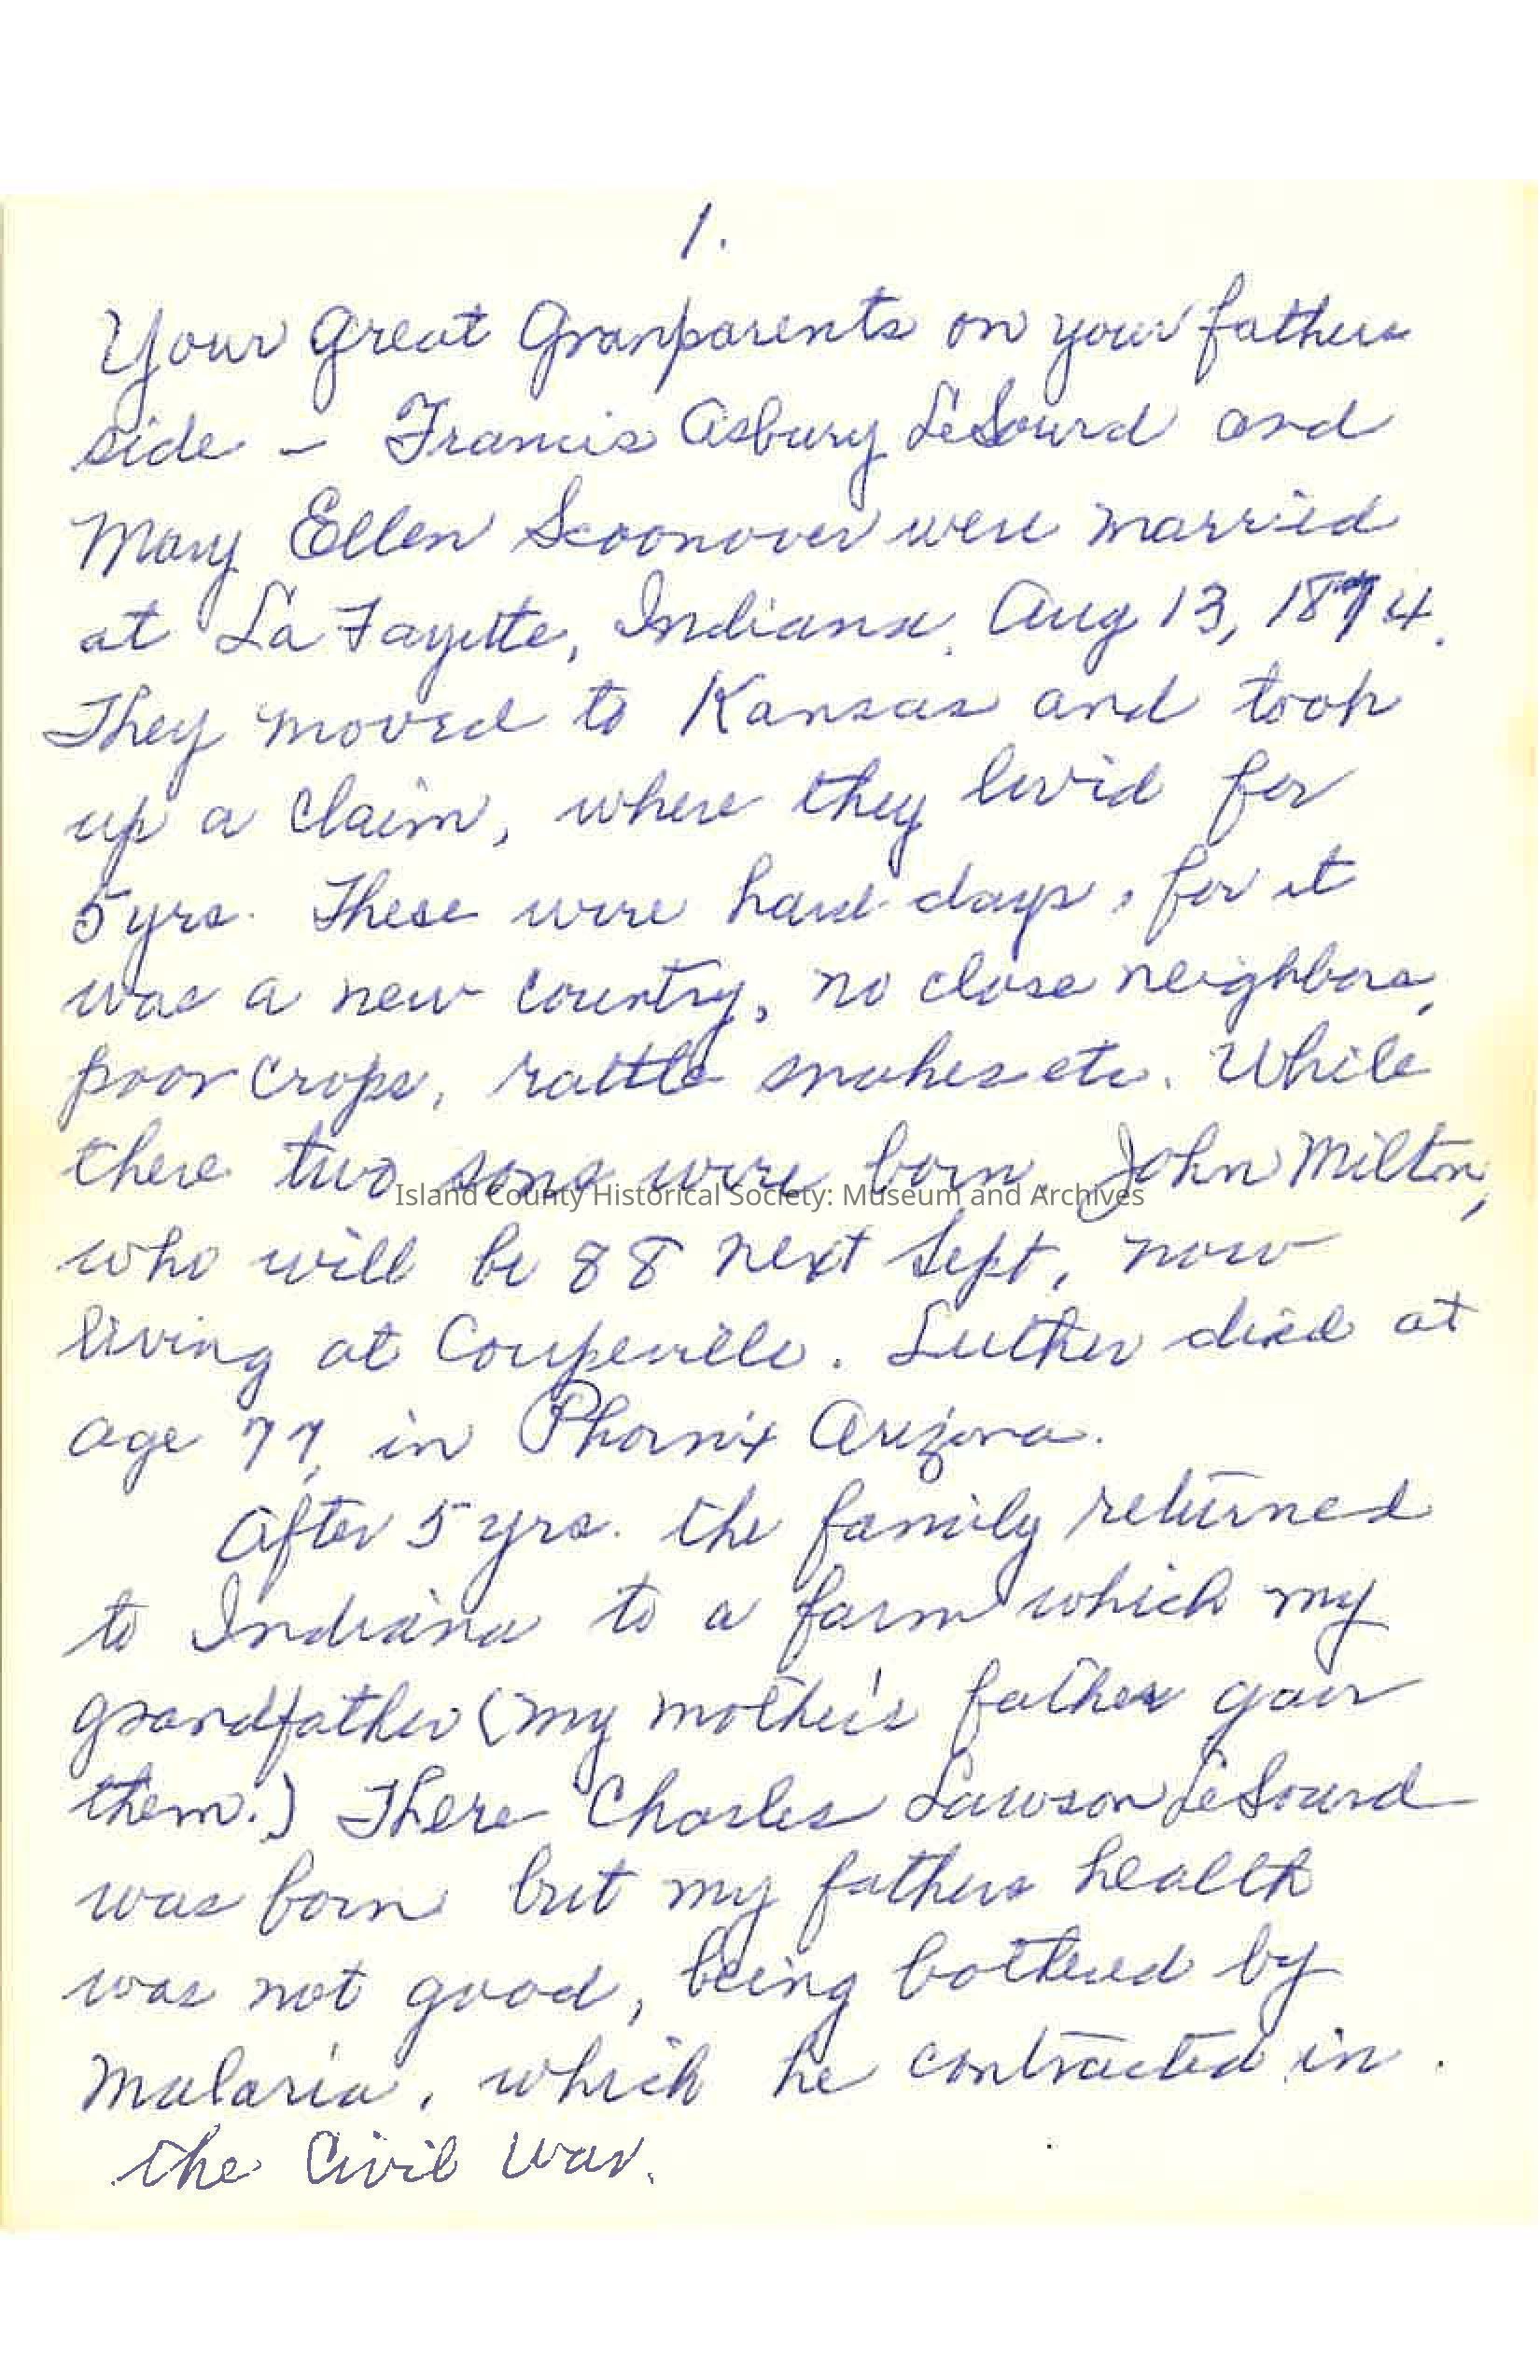 1.
Your Great Granparents on your fathers
side - Francis Asbury LeSourd and
Mary Ellen Scoonover were married
at La Fayette, Indiana. Aug 13, 1874.
They moved to Kansas and took
up a claim, where they lived for
5 yrs. These were hard days, for it
was a new country, no close neighbors,
poor crops, rattle snakes etc. While
there two sons were born. John Milton,
Island County Historical Society: Museum and Archives
who will be 88 next Sept, now
living at Coupeville. Luther died at
age 77, in Phoenix Arizona.
After 5 yrs. the family returned
to Indiana to a farm which my
grandfather (my mother's father gave
them.) There Charles Lawson LeSourd
was born but my fathers health
was not good, being bothered by
Malaria, which he contracted in
the Civil War.